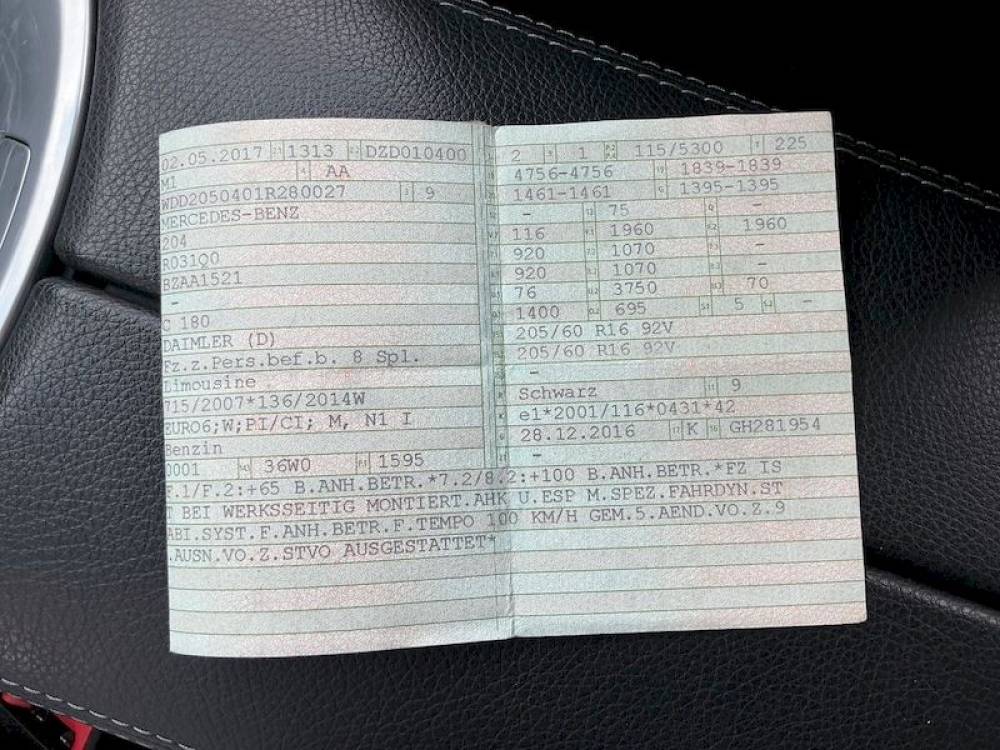 02.05.2017 1313 DZD010400
M1 AA
WDD2050401R280027 9
MERCEDES-BENZ
204
R031Q0
BZAA1521
-
C 180
DAIMLER (D)
Fz.z.Pers.bef.b. 8 Spl.
Limousine
715/2007*136/2014W
EURO6;W;PI/CI; M, N1 I
Benzin
0001 36W0 1595
2 1 115/5300 225
4756-4756 1839-1839
1461-1461 1395-1395
- 75 -
116 1960 1960
920 1070 -
920 1070 -
76 3750 70
1400 695 5 -
205/60 R16 92V
205/60 R16 92V
-
Schwarz 9
e1*2001/116*0431*42
28.12.2016 K GH281954
-
F.1/F.2:+65 B.ANH.BETR.*7.2/8.2:+100 B.ANH.BETR.*FZ IS
T BEI WERKSSEITIG MONTIERT.AHK U.ESP M.SPEZ.FAHRDYN.ST
ABI.SYST.F.ANH.BETR.F.TEMPO 100 KM/H GEM.5.AEND.VO.Z.9
.AUSN.VO.Z.STVO AUSGESTATTET*